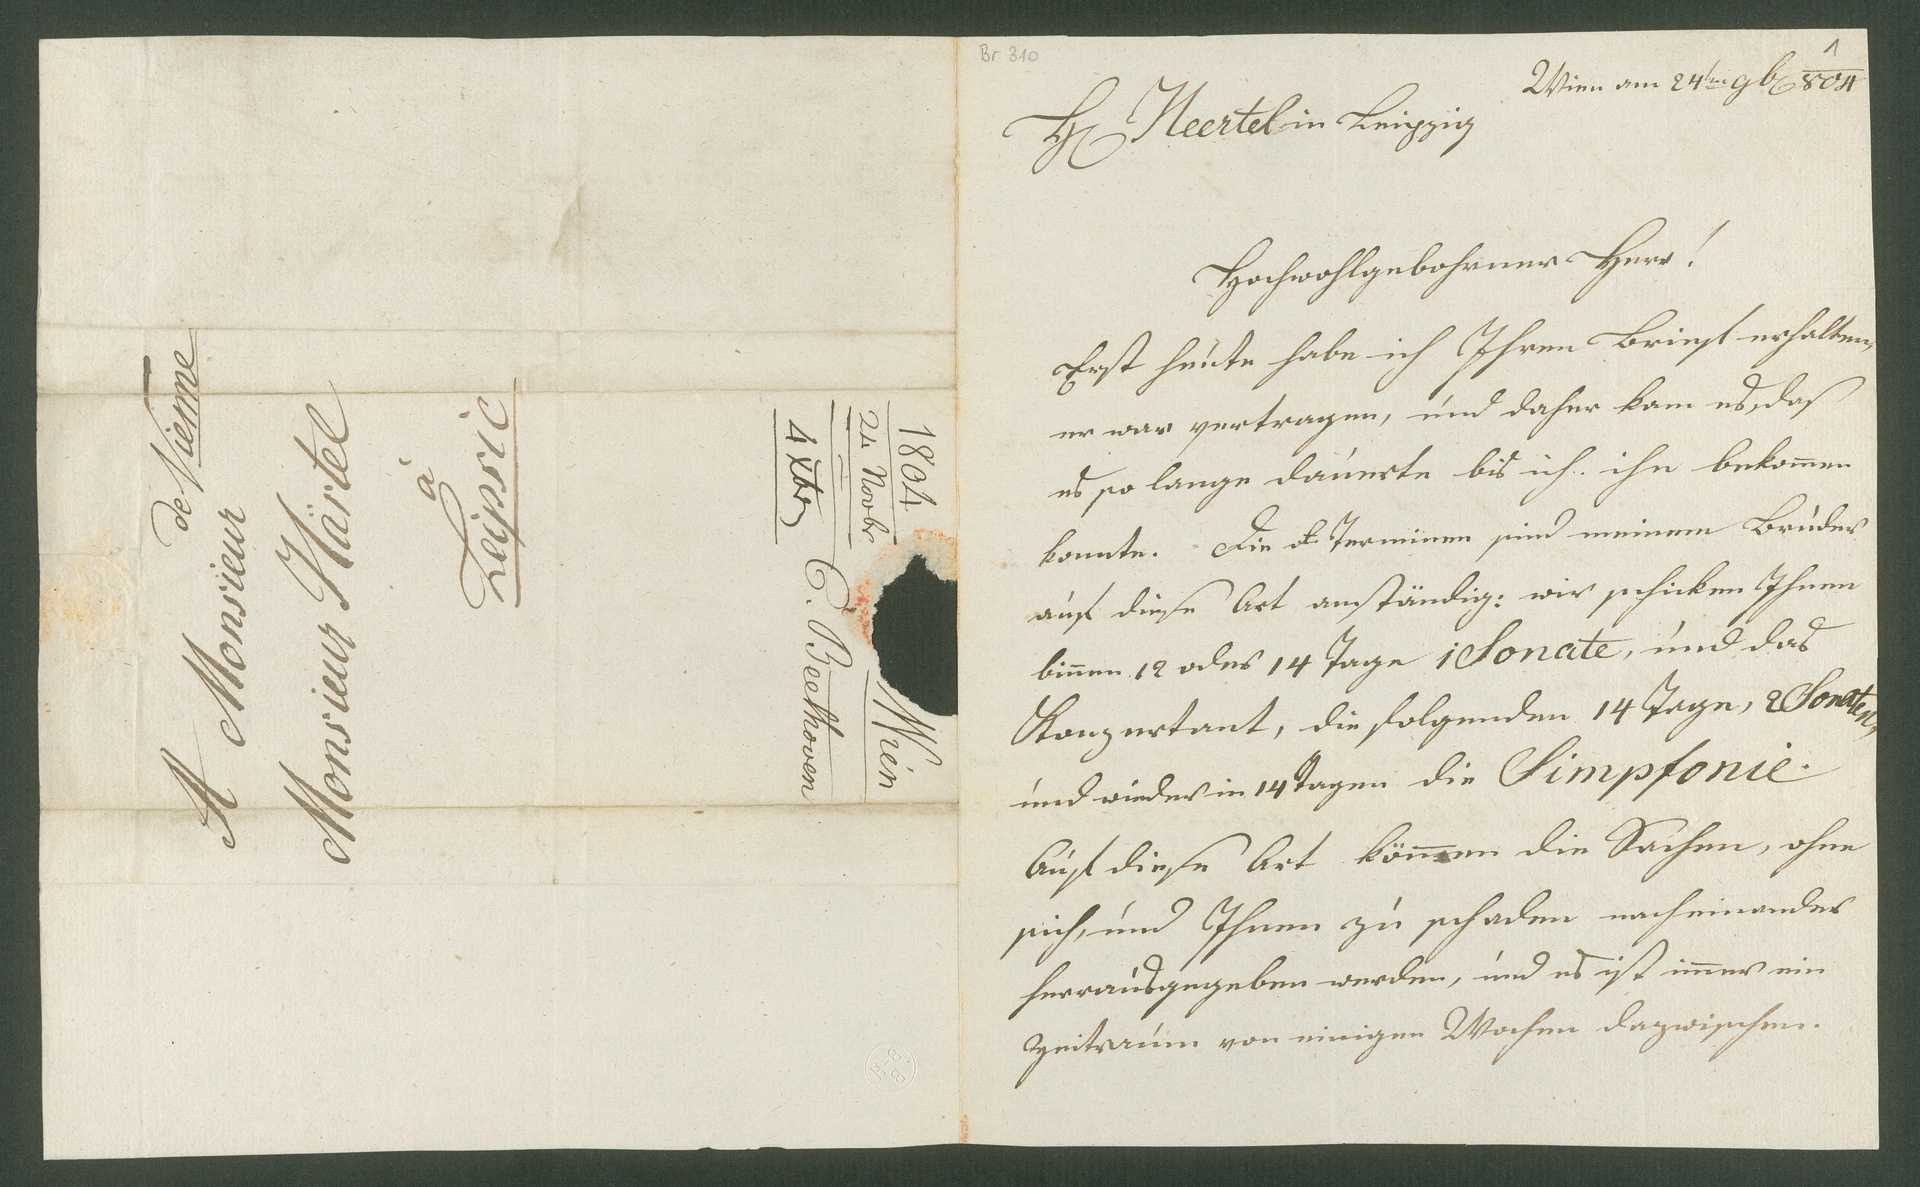 de Vienne
A Monsieur
Monsieur Härtel
à
Leipsic
1804
24 Novbr
4 Xbr
Wien
C. Beethoven
Br 310
1
Wien am 24ten 9br 804
H Heertel in Leipzig
Hochwohlgebohrner Herr!
Erst heute habe ich Ihren Brief erhalten,
er war vertragen, und daher kam es, daß
es so lange dauerte bis ich ihn bekommen
konnte. Die Terminen sind meinem Bruder
auf diese Art anständig: wir schicken Ihnen
binnen 12 oder 14 Tage 1 Sonate, und das
Konzertant, die folgenden 14 Tage, 2 Sonaten,
und wieder in 14 Tagen die Simpfonie.
Auf diese Art können die Sachen, ohne
sich, und Ihnen zu schaden nacheinander
herrausgegeben werden, und es ist immer ein
Zeitraum von einigen Wochen dazwischen.